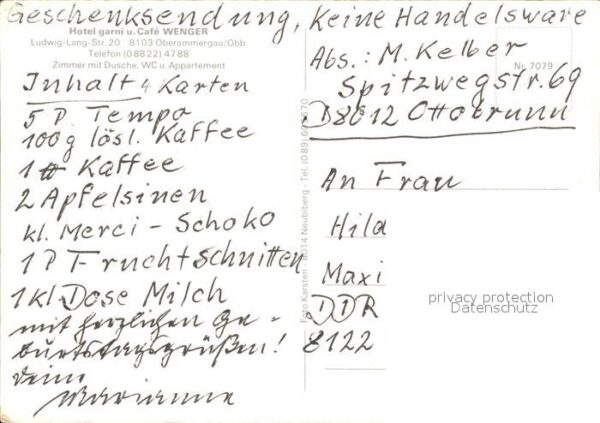 Geschenksendung, Keine Handelsware
Hotel garni u. Café WENGER
Ludwig-Lang-Str. 20 8103 Oberammergau/Obb.
Telefon (08822) 4788
Zimmer mit Dusche, WC u. Appartement
Inhalt 4 Karten
5 P. Tempo
100g lösl. Kaffee
1 Kaffee
2 Apfelsinen
kl. Merci - Schoko
1 P Fruchtschnitten
1 kl. Dose Milch
mit herzlichen Ge-
burtstagsgrüßen!
Deine
Marianne
Foto Karsten · 8014 Neubiberg · Tel. (089)
Nr. 7079
Abs.: M. Kelber
Spitzwegstr. 69
D8012 Ottobrunn
An Frau
Hild
Maxi
DDR
8122
privacy protection
Datenschutz